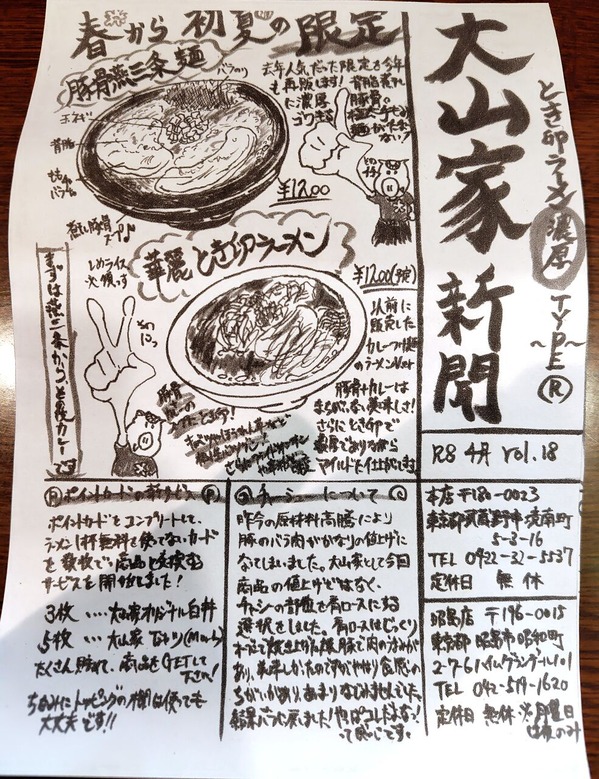 大山家新聞
とき卵ラーメン 濃厚 TYPE Ⓡ
R8 4月 vol.18
春から初夏の限定
豚骨燕三条麺
去年人気だった限定を今年
も再販します!背脂荒れ
に濃厚豚骨。
バラのり
玉ネギ
背脂
¥1200
華麗とき卵ラーメン
¥1200(予定)
〆のライス
必須っす
まずは燕三条から、その後カレーです
以前に
販売した
カレーつけ麺
のラーメンVer
豚骨+カレーは
まちがいない美味しさ!
さらにとき卵で
濃厚でありながら
マイルドに仕上がってます
豚骨
カレーの
スープにとき卵!
Ⓟポイントカードの新サービスⓅ
ポイントカードをコンプリートして、
ラーメン1杯無料を使ってないカード
を数枚で、商品と交換する
サービスを開始しました!
3枚 ・・・・ 大山家オリジナル白丼
5枚 ・・・・ 大山家Tシャツ(MorL)
たくさん貯めて、商品をGETして
下さい!
ちなみにトッピングの欄は使っても
大丈夫です!!
チャーシューについて
昨今の原材料高騰により
豚のバラ肉がかなりの値上げに
なってしまいました。大山家として今回
商品の値上げではなく、
チャーシューの部位を肩ロースにする
選択をしました。肩ロースはじっくり
あり、美味しかったのですがやはり食感の
ちがいがあり、あまりなじみませんでした。
結果バラに戻しました!やっぱコレだよな!
って感じです。
本店 〒180-0023
東京都武蔵野市境南町
5-3-16
TEL 0422-32-5537
定休日 無休
昭島店 〒196-0015
東京都昭島市昭和町
2-7-6 ハイムグンデール101
TEL 042-519-1620
定休日 無休 ※月曜日
は夜のみ